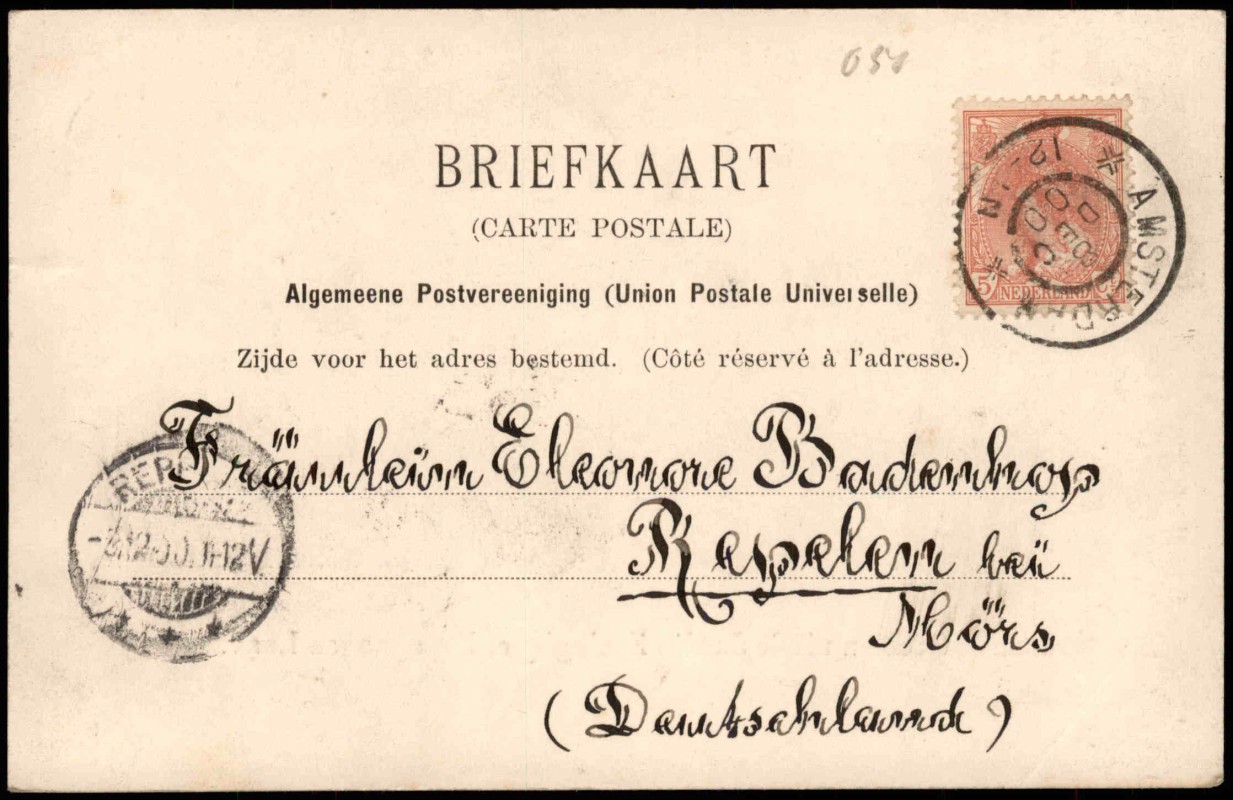 051
BRIEFKAART
(CARTE POSTALE)
Algemeene Postvereeniging (Union Postale Universelle)
Zijde voor het adres bestemd. (Côté réservé à l'adresse.)
5 NEDERLAND
AMSTERDAM
DEC 00
12- N
Fräulein Eleonore Badenhop
Repelen bei
Mörs
(Deutschland)
REP
12.00. 11-12V